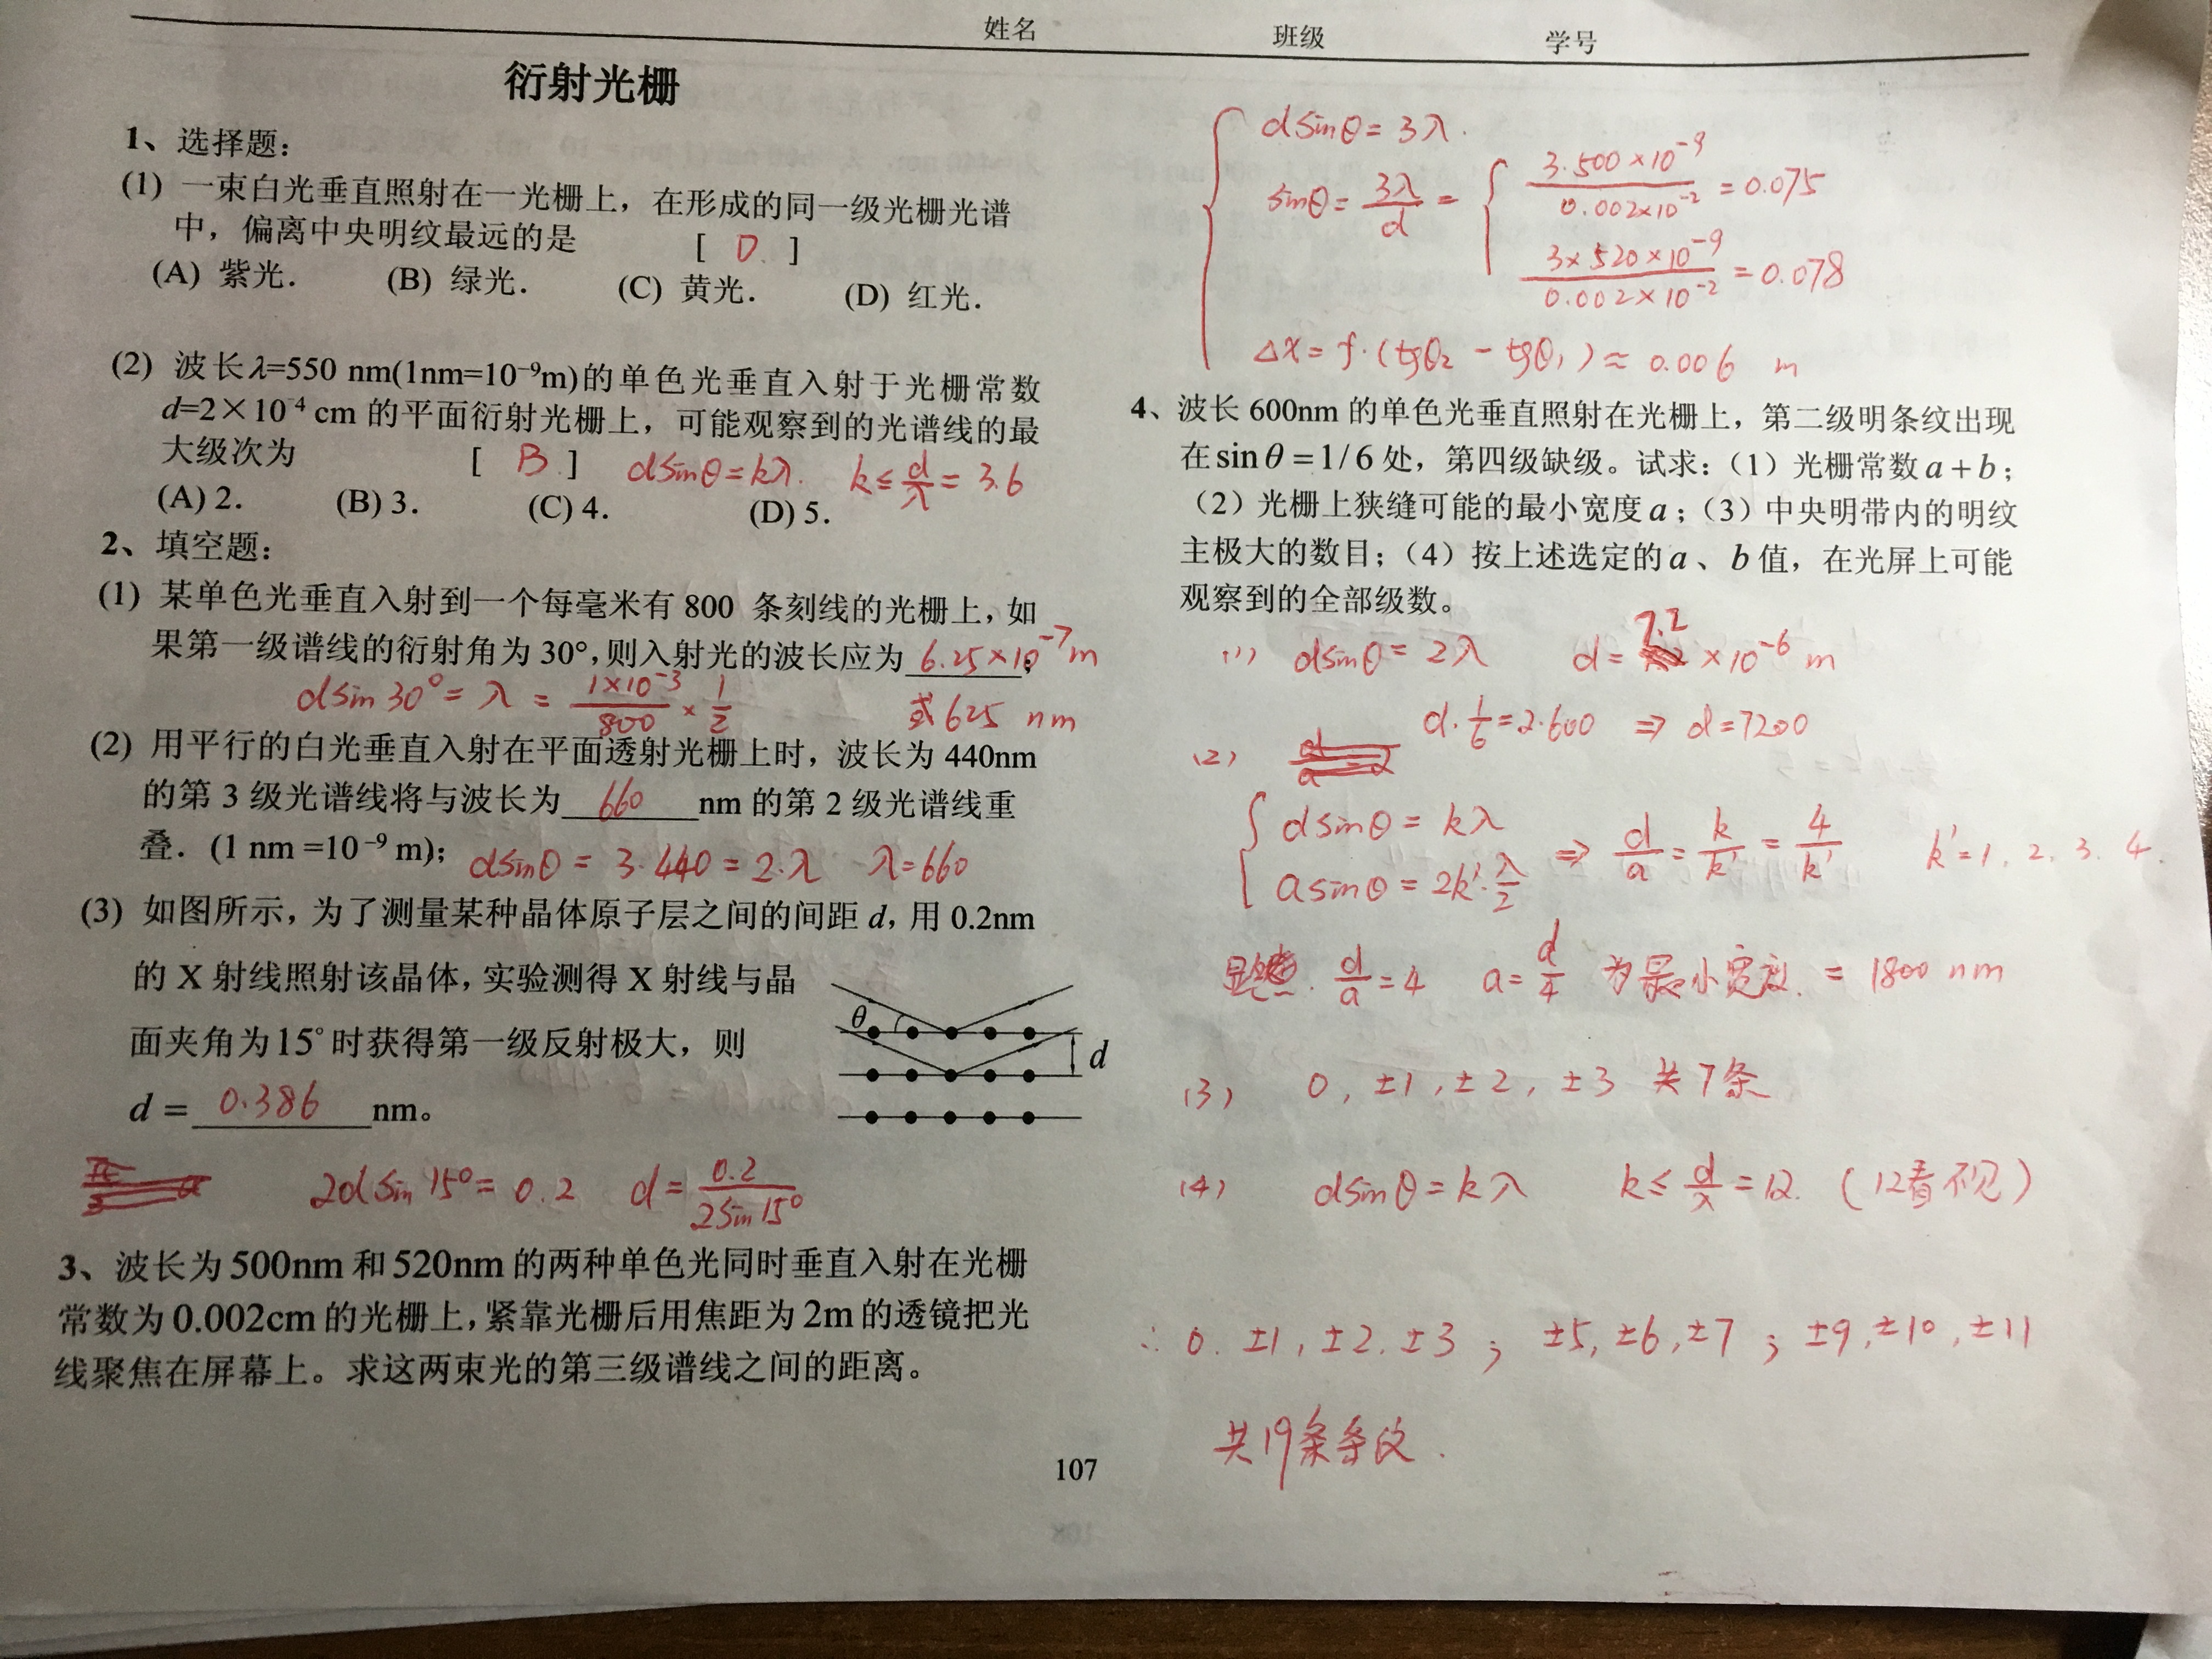 姓名 班级 学号
衍射光栅
1、选择题:
(1) 一束白光垂直照射在一光栅上，在形成的同一级光栅光谱
中，偏离中央明纹最远的是 [ D. ]
(A) 紫光. (B) 绿光. (C) 黄光. (D) 红光.
(2) 波长λ=550 nm(1nm=10⁻⁹m)的单色光垂直入射于光栅常数
d=2×10⁻⁴ cm 的平面衍射光栅上，可能观察到的光谱线的最
大级次为 [ B. ] dsinθ=kλ. k≤d/λ=3.6
(A) 2. (B) 3. (C) 4. (D) 5.
2、填空题:
(1) 某单色光垂直入射到一个每毫米有 800 条刻线的光栅上，如
果第一级谱线的衍射角为 30°,则入射光的波长应为 6.25×10⁻⁷m ;
dsin30°=λ=1×10⁻³/800×1/2 或625 nm
(2) 用平行的白光垂直入射在平面透射光栅上时，波长为 440nm
的第 3 级光谱线将与波长为 660 nm 的第 2 级光谱线重
叠. (1 nm =10⁻⁹ m);
dsinθ=3·440=2·λ λ=660
(3) 如图所示，为了测量某种晶体原子层之间的间距 d, 用 0.2nm
的 X 射线照射该晶体，实验测得 X 射线与晶
面夹角为15°时获得第一级反射极大，则
d = 0.386 nm。
θ
d
2dsin15°=0.2 d=0.2/2sin15°
3、波长为 500nm 和 520nm 的两种单色光同时垂直入射在光栅
常数为 0.002cm 的光栅上，紧靠光栅后用焦距为 2m 的透镜把光
线聚焦在屏幕上。求这两束光的第三级谱线之间的距离。
dsinθ=3λ.
sinθ=3λ/d={3·500×10⁻⁹/0.002×10⁻²=0.075
3×520×10⁻⁹/0.002×10⁻²=0.078
Δx=f·(tgθ₂-tgθ₁)≈0.006 m
4、波长 600nm 的单色光垂直照射在光栅上，第二级明条纹出现
在 sinθ=1/6 处，第四级缺级。试求：（1）光栅常数 a+b；
（2）光栅上狭缝可能的最小宽度 a；（3）中央明带内的明纹
主极大的数目；（4）按上述选定的 a、b 值，在光屏上可能
观察到的全部级数。
(1) dsinθ=2λ d=7.2×10⁻⁶ m
d·1/6=2·600 ⇒ d=7200
(2)
{dsinθ=kλ
asinθ=2k'·λ/2 ⇒ d/a=k/k'=4/k' k'=1, 2, 3, 4.
d/a=4 a=d/4 为最小宽度. = 1800 nm
(3) 0, ±1, ±2, ±3 共7条
(4) dsinθ=kλ k≤d/λ=12. (12看不见)
∴ 0. ±1, ±2, ±3 ; ±5, ±6, ±7 ; ±9, ±10, ±11
共19条条纹.
107